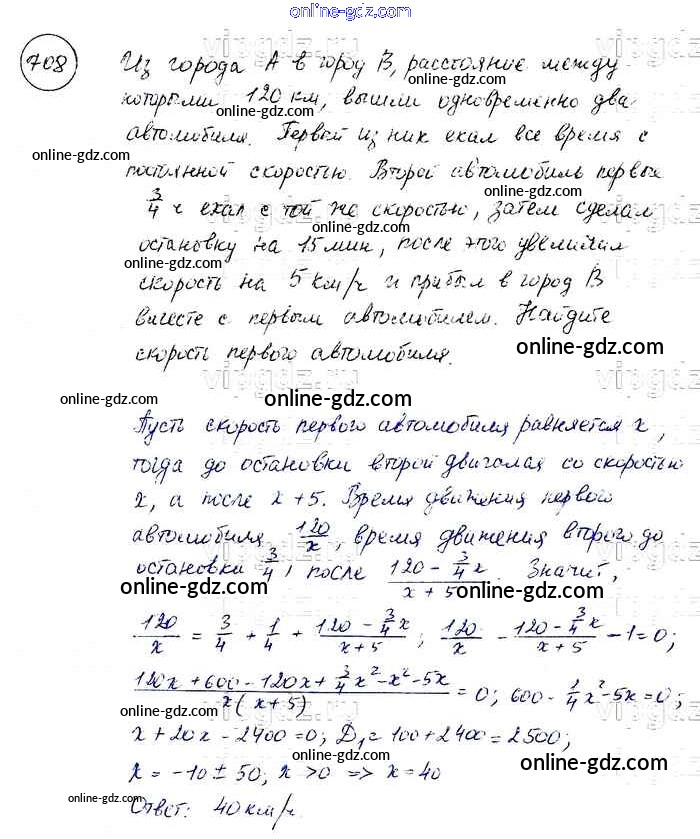 online-gdz.com
708
Из города А в город В, расстояние между
online-gdz.com
которыми 120 км, вышли одновременно два
online-gdz.com
автомобиля. Первый из них ехал все время с
online-gdz.com
постоянной скоростью. Второй автомобиль первые
online-gdz.com
3/4 ч ехал с той же скоростью, затем сделал
остановку на 15 мин, после этого увеличил
online-gdz.com
скорость на 5 км/ч и прибыл в город В
вместе с первым автомобилем. Найдите
online-gdz.com
скорость первого автомобиля.
online-gdz.com
online-gdz.com
Пусть скорость первого автомобиля равняется x,
online-gdz.com
тогда до остановки второй двигался со скоростью
x, а после x + 5. Время движения первого
online-gdz.com
автомобиля 120/x, время движения второго до
online-gdz.com
остановки 3/4, после (120 - 3/4 x)/(x + 5). Значит,
online-gdz.com
online-gdz.com
120/x = 3/4 + 1/4 + (120 - 3/4 x)/(x+5); 120/x - (120 - 3/4 x)/(x+5) - 1 = 0;
online-gdz.com
(120x + 600 - 120x + 3/4 x² - x² - 5x)/(x(x+5)) = 0; 600 - 1/4 x² - 5x = 0;
online-gdz.com
online-gdz.com
x + 20x - 2400 = 0; D₁ = 100 + 2400 = 2500;
online-gdz.com
x = -10 ± 50; x > 0 => x = 40
online-gdz.com
Ответ: 40 км/ч.
online-gdz.com